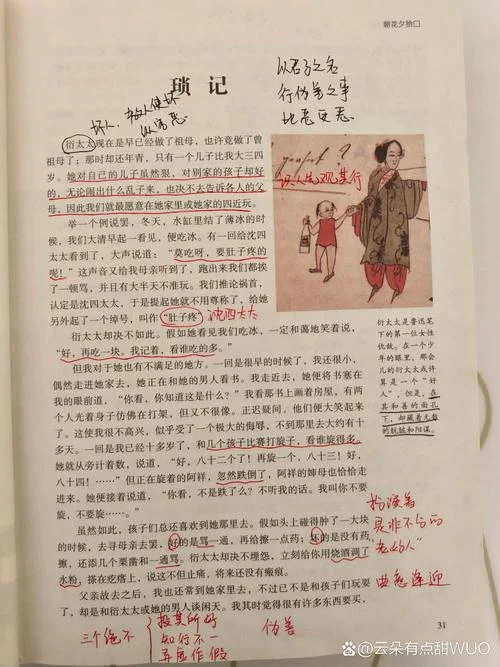 朝花夕拾
琐 记
坏人、教人使坏
以君子之名
行伪善之事
比恶更恶
识人先观其行
衍太太现在是早已经做了祖母，也许竟做了曾
祖母了；那时却还年青，只有一个儿子比我大三四
岁。她对自己的儿子虽然狠，对别家的孩子却好
的，无论闹出什么乱子来，也决不去告诉各人的父
母，因此我们就最愿意在她家里或她家的四近玩。
举一个例说罢，冬天，水缸里结了薄冰的时
候，我们大清早起一看见，便吃冰。有一回给沈四
太太看到了，大声说道：“莫吃呀，要肚子疼的
呢！”这声音又给我母亲听到了，跑出来我们都挨
了一顿骂，并且有大半天不准玩。我们推论祸首，
认定是沈四太太，于是提起她就不用尊称了，给她
另外起了一个绰号，叫作“肚子疼”。
沈四太太
衍太太却决不如此。假如她看见我们吃冰，一定和蔼地笑着说，
“好，再吃一块。我记着，看谁吃的多。”
但我对于她也有不满足的地方。一回是很早的时候了，我还很小，
偶然走进她家去，她正在和她的男人看书。我走近去，她便将书塞在
我的眼前道，“你看，你知道这是什么？”我看那书上画着房屋，有两
个人光着身子仿佛在打架，但又不很像。正迟疑间，他们便大笑起来
了。这使我很不高兴，似乎受了一个极大的侮辱，不到那里去大约有十
多天。一回是我已经十多岁了，和几个孩子比赛打旋子，看谁旋得多。
她就从旁计着数，说道，“好，八十二个了！再旋一个，八十三！好，
八十四！……”但正在旋着的阿祥，忽然跌倒了，阿祥的婶母也恰恰走
进来。她便接着说道，“你看，不是跌了么？不听我的话。我叫你不要
旋，不要旋……。”
虽然如此，孩子们总还喜欢到她那里去。假如头上碰得肿了一大块
的时候，去寻母亲去罢，好的是骂一通，再给擦一点药；坏的是没有药
擦，还添几个栗凿和一通骂。衍太太却决不埋怨，立刻给你用烧酒调了
水粉，搽在疙瘩上，说这不但止痛，将来还没有瘢痕。
父亲故去之后，我也还常到她家里去，不过已不是和孩子们玩耍
了，却是和衍太太或她的男人谈闲天。我其时觉得很有许多东西要买，
衍太太是鲁迅笔
下的第一位女性
优敌。在一个少
年的眼里，那会
儿的衍太太或许
算是一个“好
人”，但是，在
其和善的面孔
下，却藏着无穷
的肮脏和阴谋。
扮演着
是非不分的
“老好人”
曲意逢迎
三个绝不
投其所好
知行不一
弄虚作假
伪善
31
@云朵有点甜WUO